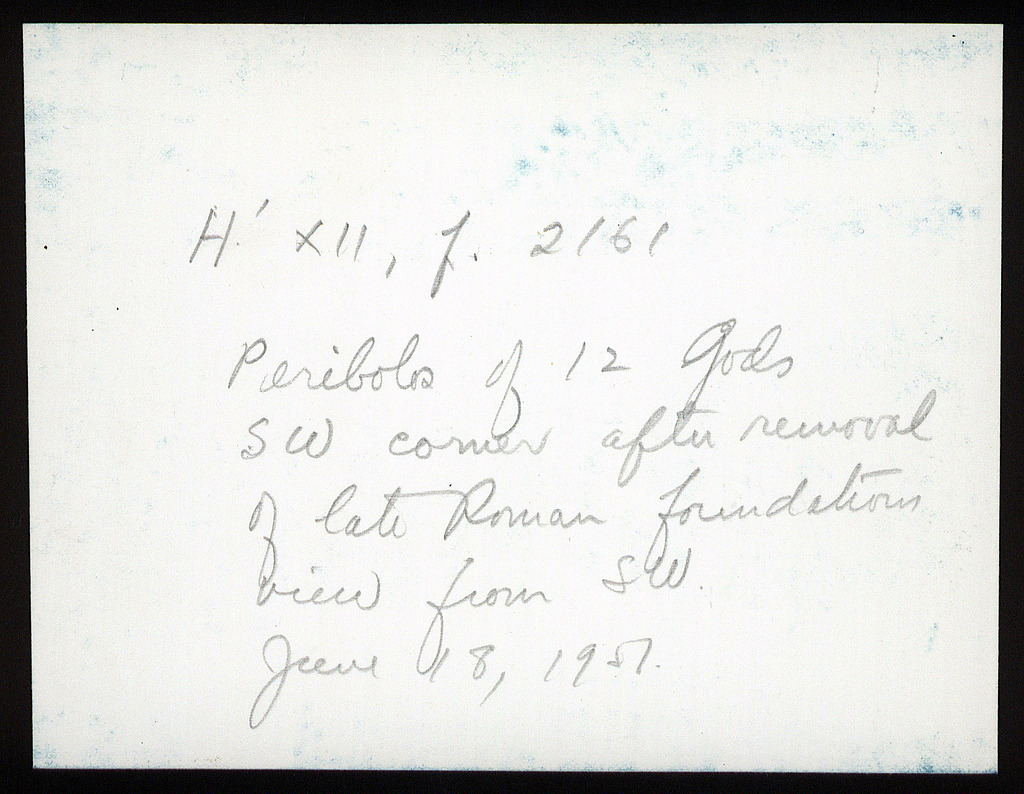 H' XII, p. 2161
Peribolos of 12 Gods
SW corner after removal
of late Roman foundations
view from SW.
June 18, 1951.